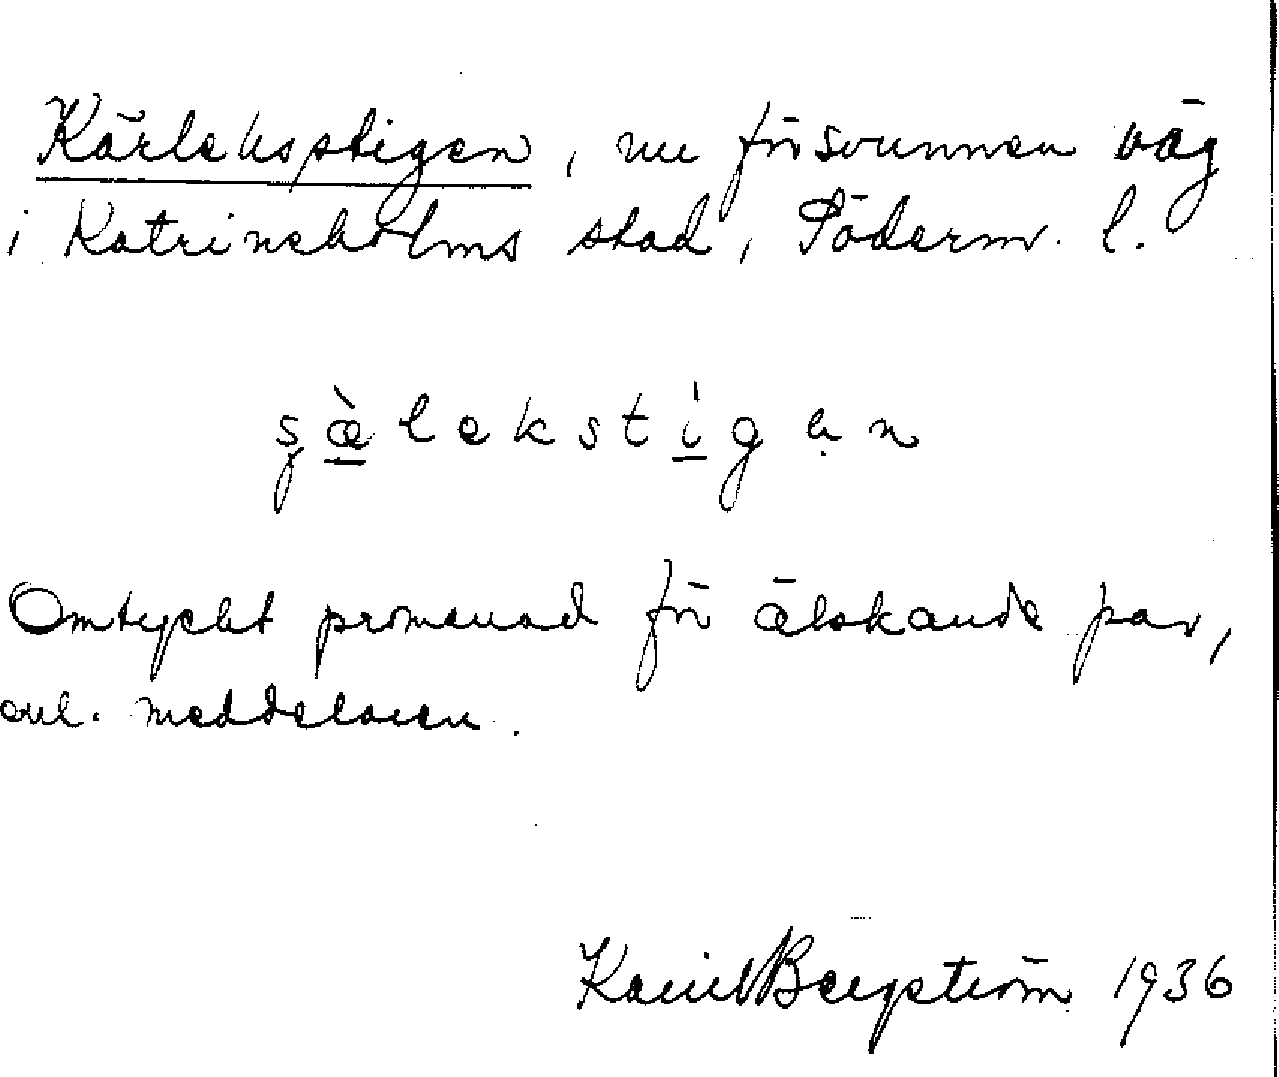 Kärleksstigen, nu försvunnen väg
i Katrineholms stad, Söderm. l.
ʂæ̀lekstígẹn
Omtyckt promenad för älskande par,
enl. meddelaren.
Bergström 1936